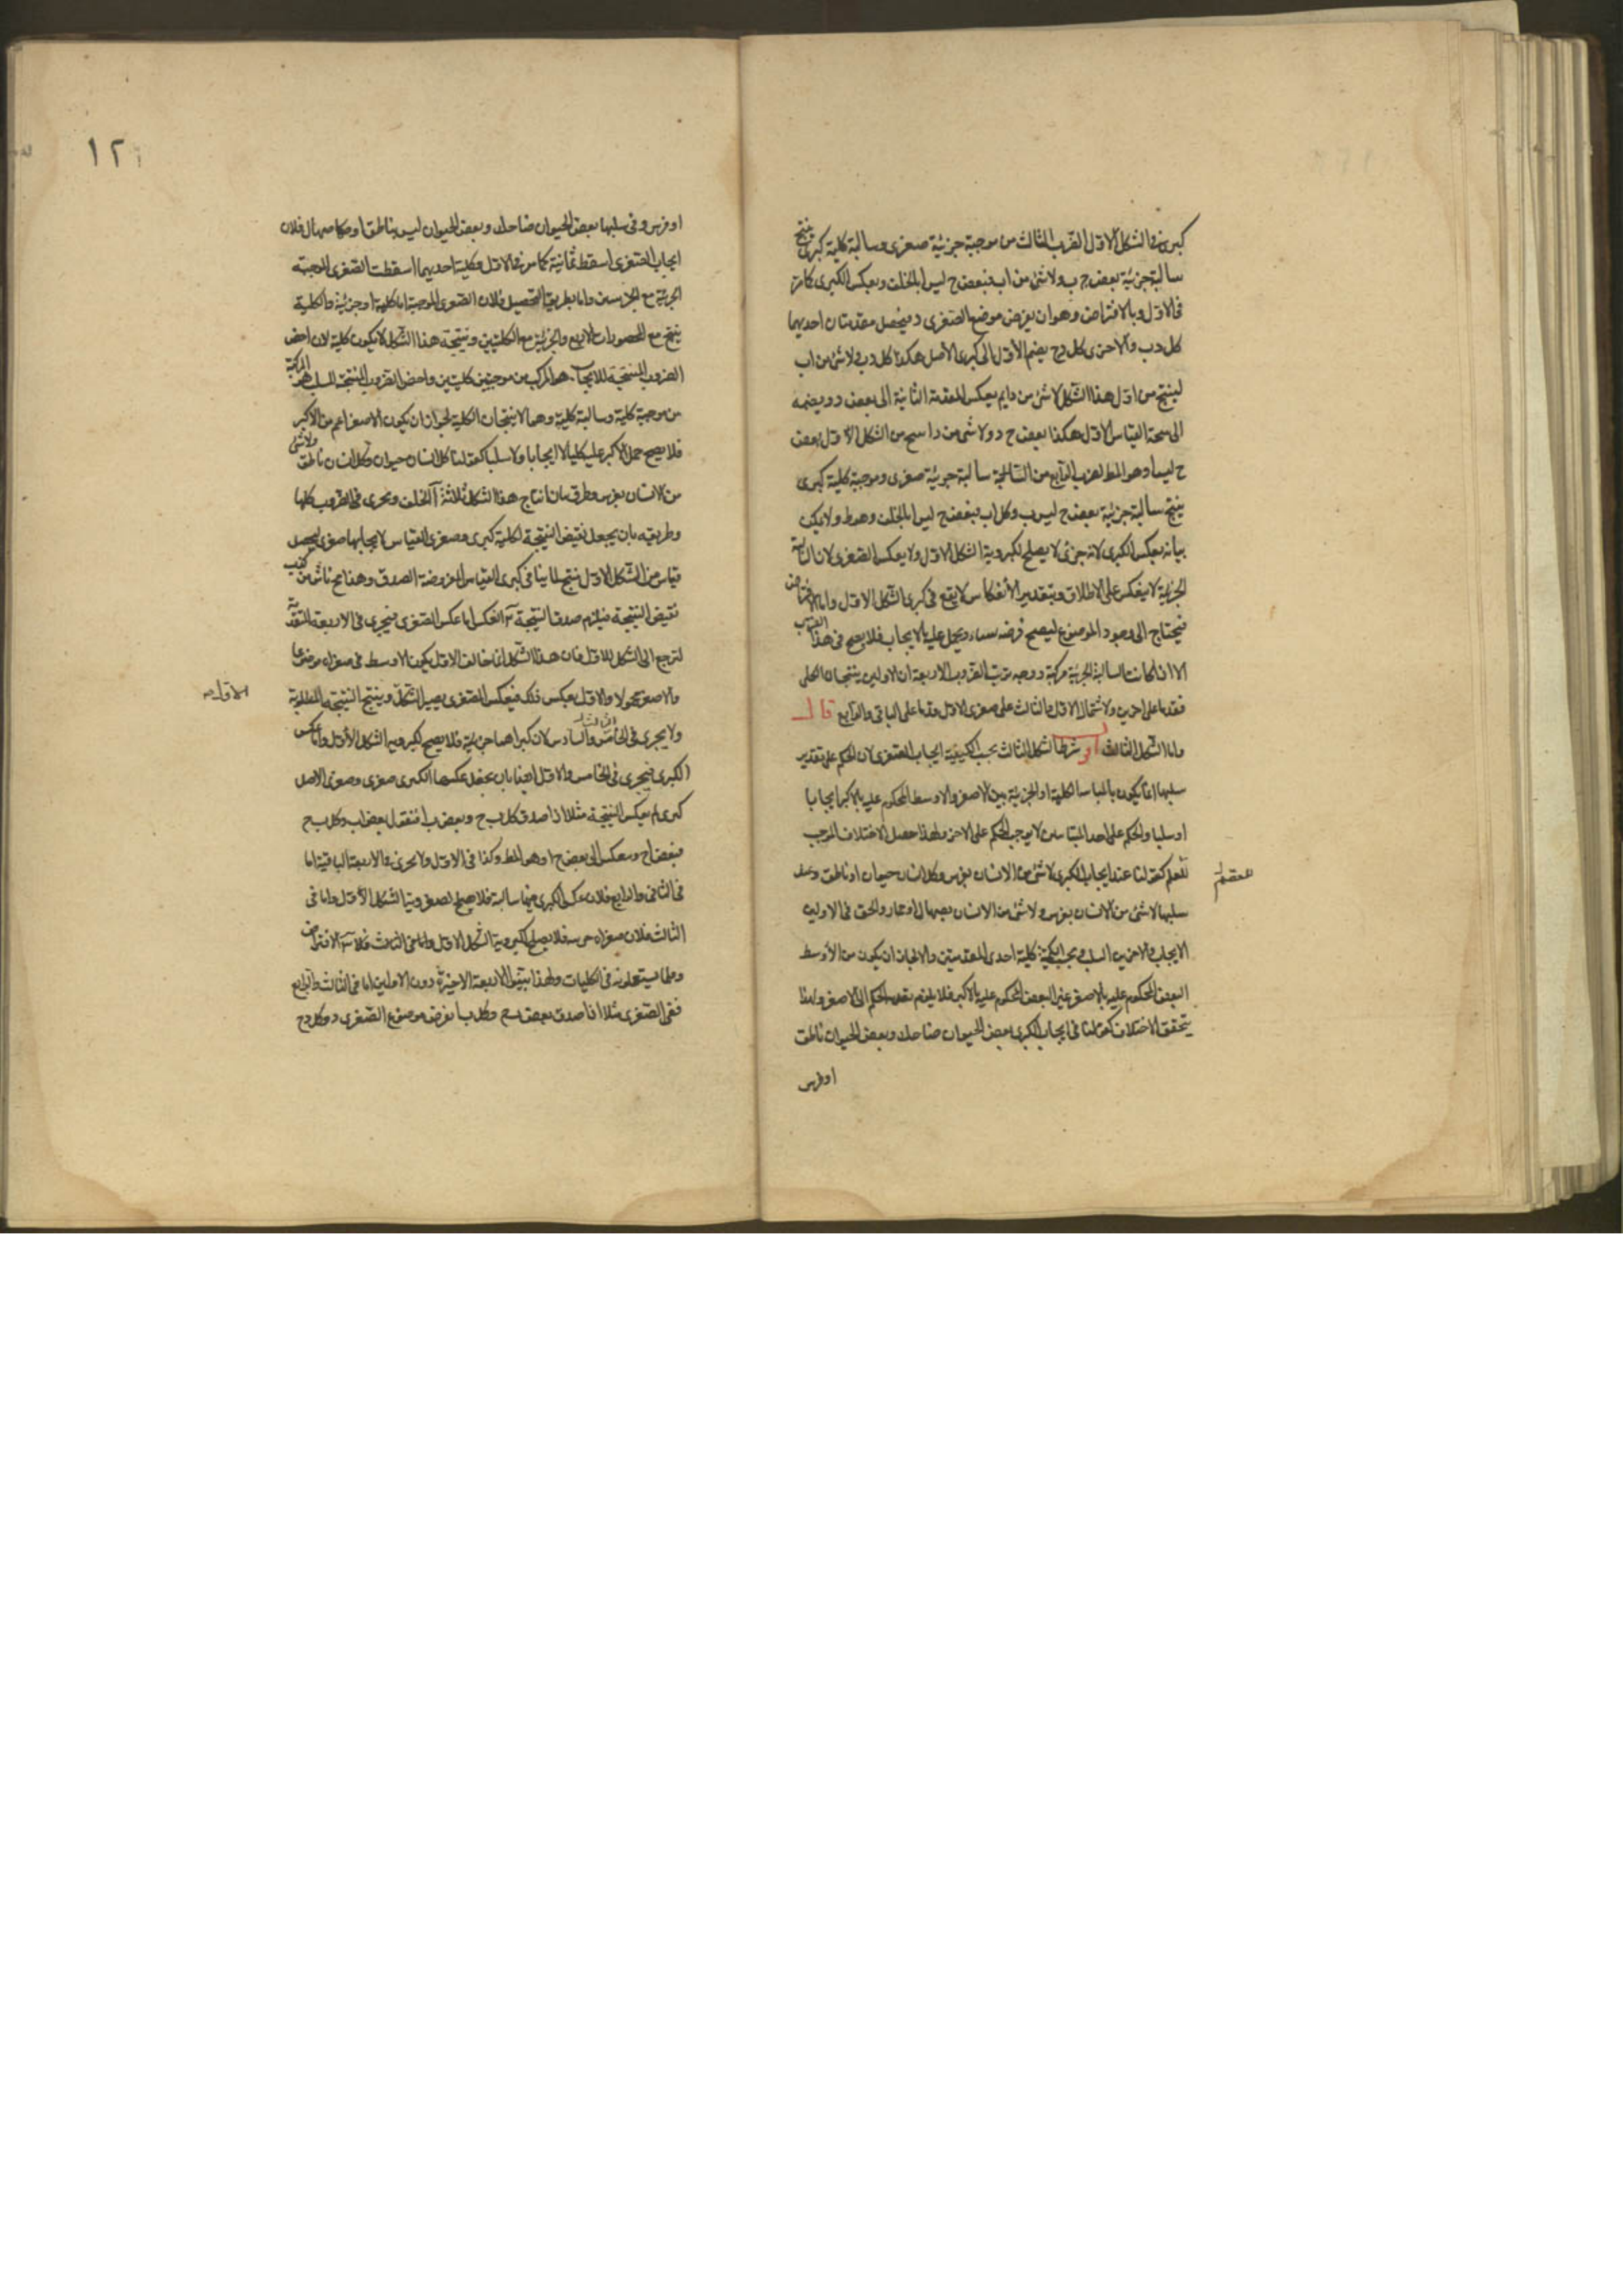 كبرى في الشكل الاول الضرب الثالث من موجبة جزئية صغرى وسالبة كلية كبرى ينتج
سالبة جزئية بعض ج ب ولا شئ من ا ب فبعض ج ليس ا بالخلف وبعكس الكبرى كما مر
في الاول وبالافتراض وهو ان يفرض موضوع الصغرى د فيحصل مقدمتان احديهما
كل د ب والاخرى كل د ج يضم الاولى الى كبرى الاصل هكذا كل د ب ولا شئ من ا ب
لينتج من اول هذا الشكل لا شئ من د ا ثم يعكس المقدمة الثانية الى بعض ج د ويضمه
الى نتيجة القياس الاول هكذا بعض ج د ولا شئ من د ا ينتج من الشكل الاول بعض
ج ليس ا وهو المط الضرب الرابع من سالبة جزئية صغرى وموجبة كلية كبرى
ينتج سالبة جزئية بعض ج ليس ب وكل ا ب فبعض ج ليس ا بالخلف وهو ط ولا يمكن
بيانه بعكس الكبرى لانه جزئى لا يصلح لكبروية الشكل الاول ولا بعكس الصغرى لان السالبة
الجزئية لا ينعكس على الاطلاق وبتقدير الانعكاس لا يقع في كبرى الشكل الاول واما الافتراض
فيحتاج الى وجود الموضوع ليصح فرضه ويحمل عليه بالايجاب فلا يصح في هذا الضرب
الا اذا كانت السالبة الجزئية مركبة ووجه ترتيب الضروب الاربعة ان الاولين ينتجان الكلى
فقدما على اخرين ولاشتمال الاول والثالث على صغرى الاول قدما على الثانى والرابع قال
واما الشكل الثالث اقول شرط الشكل الثالث بحسب الكيفية ايجاب الصغرى لان الحكم على تقدير
سلبها انما يكون بالمباينة الكلية او الجزئية بين الاصغر والاوسط المحكوم عليه بالاكبر ايجابا
او سلبا والحكم على احد المتباينين لا يوجب الحكم على الاخر ولهذا حصل الاختلاف الموجب
للعقم كقولنا عند ايجاب الكبرى لا شئ من الانسان بفرس وكل انسان حيوان او ناطق وعند
سلبها لا شئ من الانسان بفرس ولا شئ من الانسان بصهال او حمار والحق في الاولين
الايجاب وفي الاخرين السلب وبحسب الكمية كلية احدى المقدمتين والا لجاز ان يكون من الاوسط
البعض المحكوم عليه بالاصغر غير البعض المحكوم عليه بالاكبر فلا يلزم تعدى الحكم الى الاصغر ولهذا
يتحقق الاختلاف كقولنا في ايجاب الكبرى بعض الحيوان ضاحك وبعض الحيوان ناطق
او فرس
للعقم
١٢
او فرس وفي سلبها بعض الحيوان ضاحك وبعض الحيوان ليس بناطق او فلان
ايجاب الصغرى اسقط ثمانية كما مر في الاول وكلية احديهما اسقطت الصغرى الموجبة
الجزئية مع الجزئيتين واما بطريق التحصيل فلان الصغرى الموجبة اما كلية او جزئية والكلية
ينتج مع المحصورات الاربع والجزئية مع الكليتين ونتيجة هذا الشكل لا يكون كلية لان اخص
الضروب المنتجة للايجاب هو المركب من موجبتين كليتين واخص الضروب المنتجة للسلب هو المركب
من موجبة كلية وسالبة كلية وهما لا ينتجان الكلية لجواز ان يكون الاصغر اعم من الاكبر
فلا يصح حمل الاكبر عليه كليا لا ايجابا ولا سلبا كقولنا كل انسان حيوان وكل انسان ناطق ولا شئ
من الانسان بفرس وطرق بيان انتاج هذا الشكل ثلاثة آ الخلف ويجرى في الضروب كلها
وطريقه بان يجعل نقيض النتيجة لكلية كبرى وصغرى القياس لايجابها صغرى ليحصل
قياس من الشكل الاول منتج لما ينافى كبرى القياس المفروضة الصدق وهذا مح ناش من
نقيض النتيجة فيلزم صدق النتيجة ب العكس اما عكس الصغرى فيجرى في الاربعة المتقدمة
لترجع الى الشكل الاول فان هذا الشكل انما خالف الاول بكون الاوسط في صغراه موضوعا
والاصغر محمولا والاول بعكس ذلك فبعكس الصغرى يصير الشكل الاول وينتج النتيجة المطلوبة
ولا يجرى في الخامس والسادس لان كبراهما جزئية فلا يصلح لكبروية الشكل الاول واما عكس
الكبرى فيجرى في الخامس والاول ايضا بان يجعل عكسها الكبرى صغرى وصغرى الاصل
كبرى ثم يعكس النتيجة مثلا اذا صدق كل ب ج وبعض ب ا فنقول بعض ا ب وكل ب ج
فبعض ا ج وينعكس الى بعض ج ا وهو المط وكذا في الاول ولا يجرى في الاربعة الباقية اما
في الثانى والرابع فلان عكس الكبرى فيهما سالبة فلا يصلح لصغروية الشكل الاول واما في
الثالث فلان صغراه جزئية فلا يصلح لكبروية الشكل الاول ج الافتراض
وقلما يستعملونه في الكليات ولهذا بينوا الاربعة الاخيرة دون الاولين اما في الثالث والرابع
ففى الصغرى مثلا اذا صدق بعض ب ج وكل ب ا نفرض موضوع الصغرى د وكل د ج